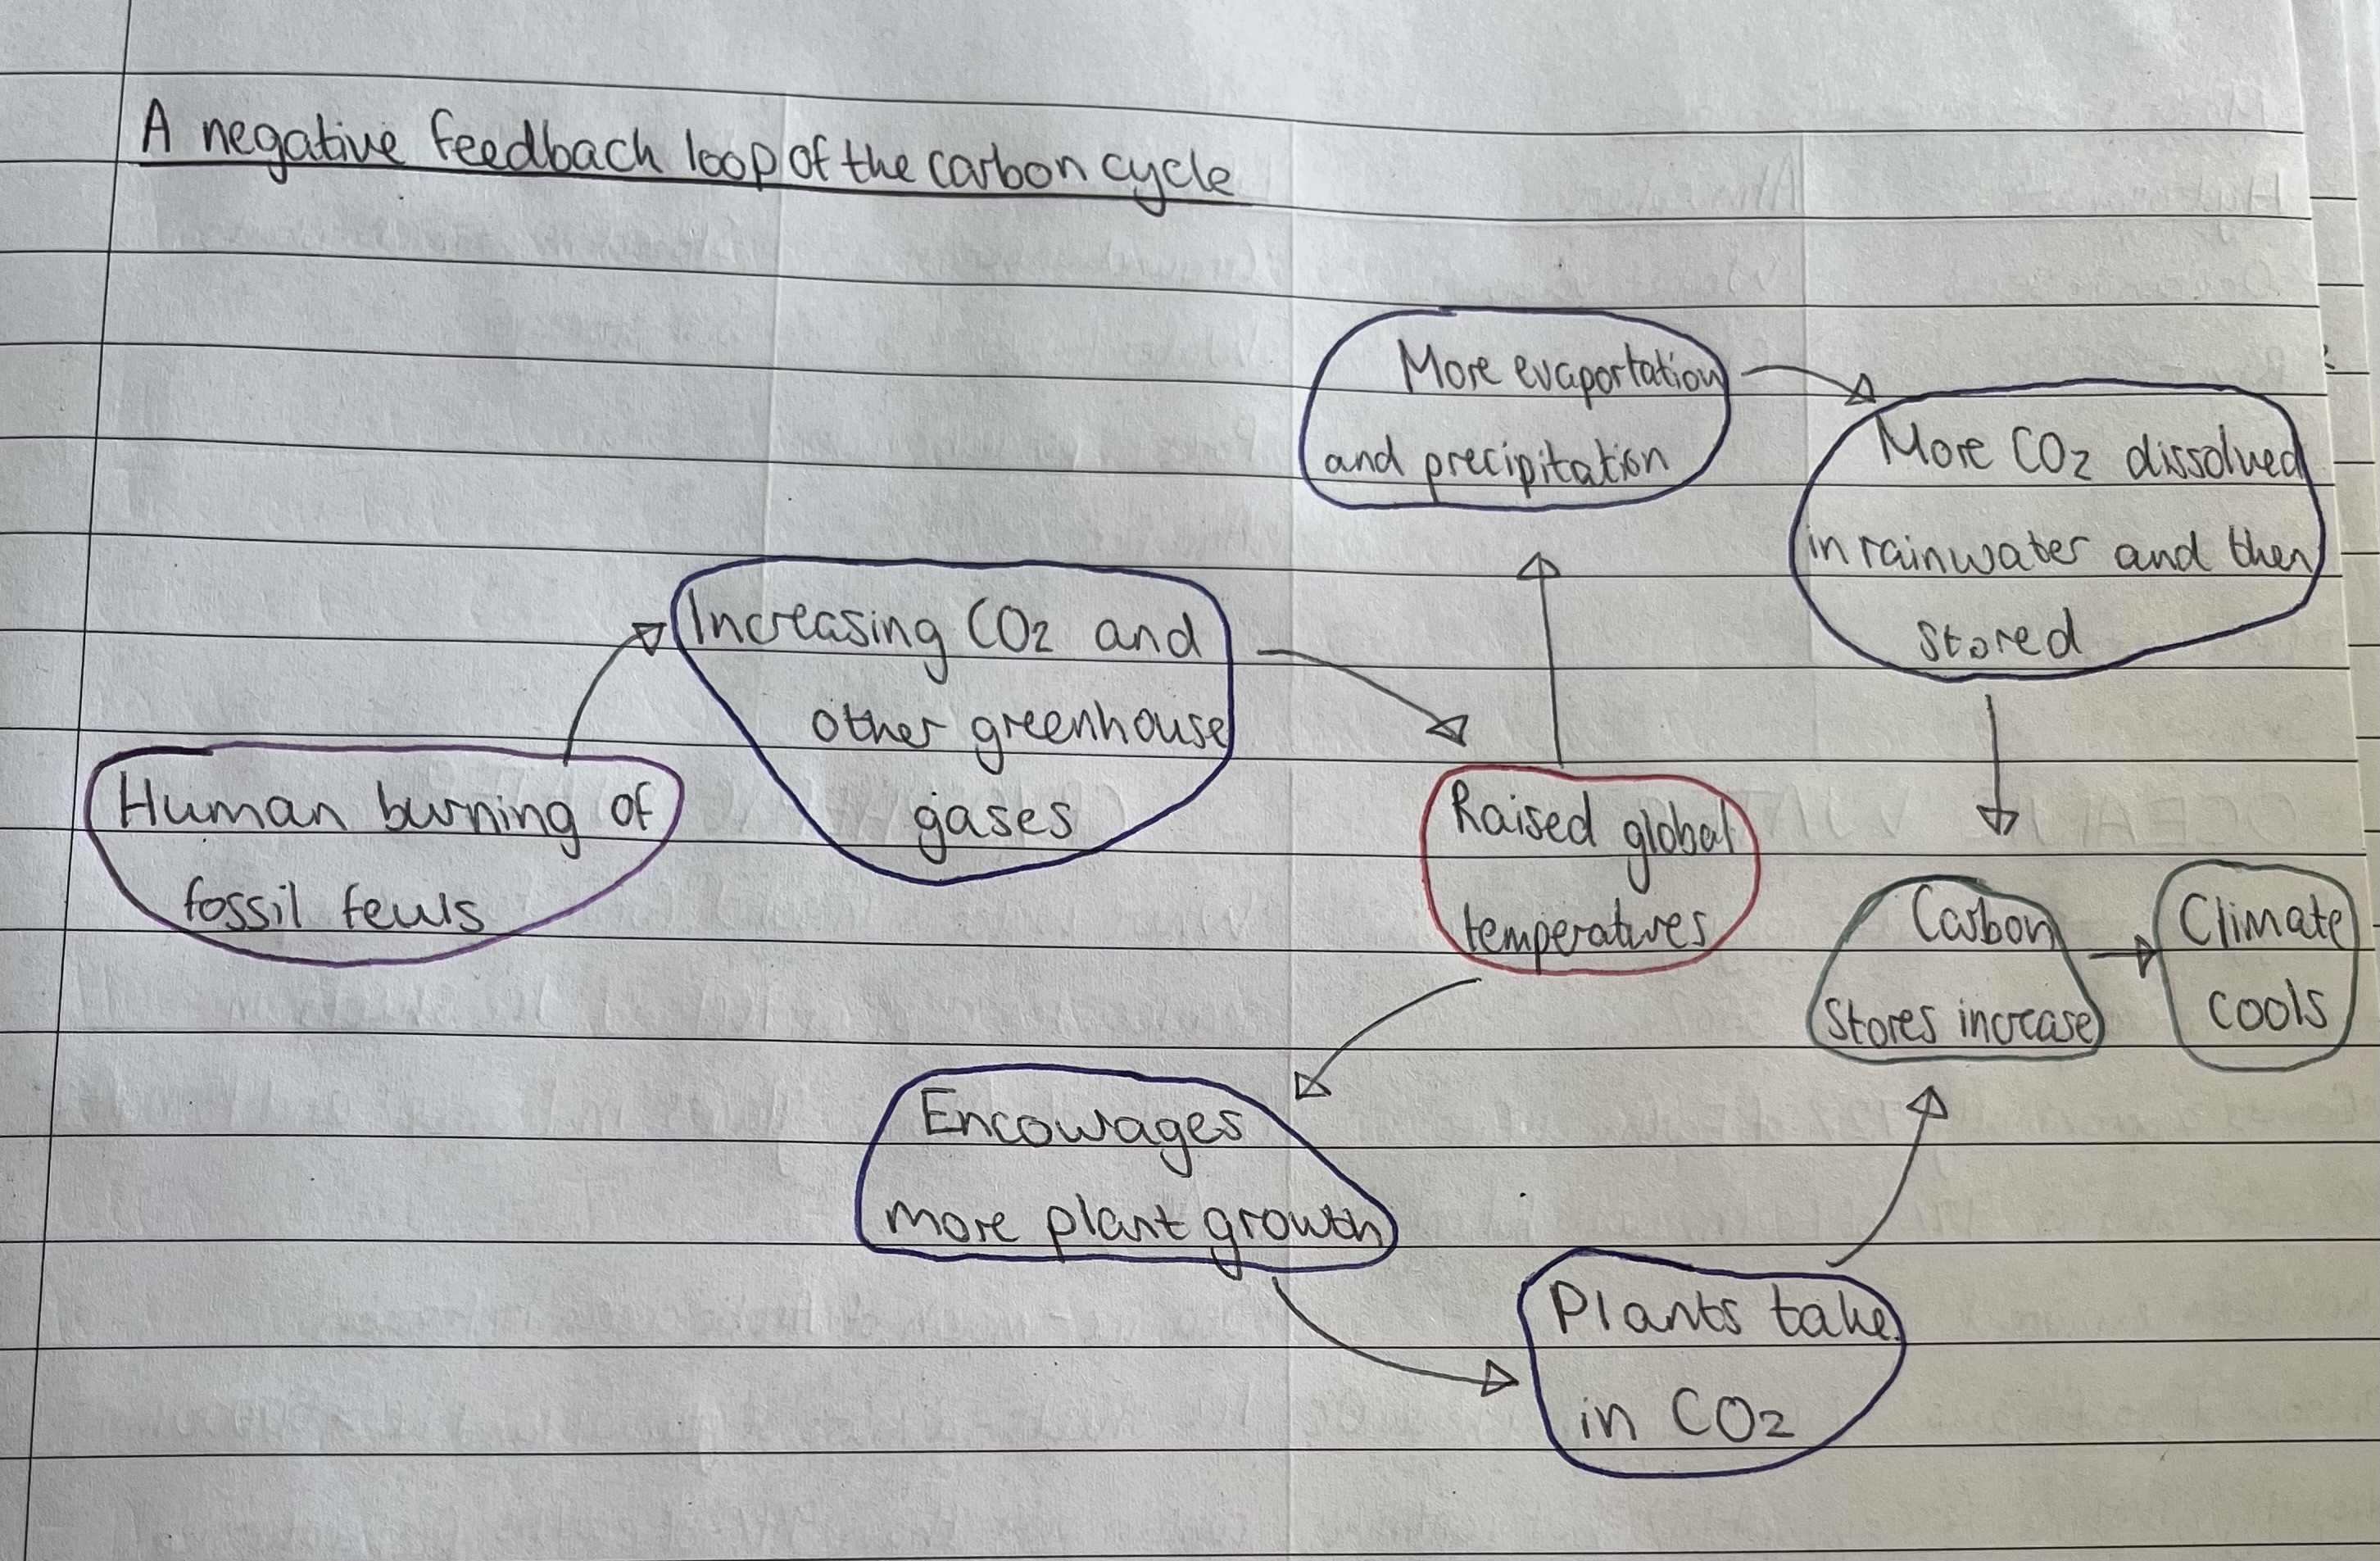 A negative feedback loop of the carbon cycle
More evaportation
and precipitation
More CO2 dissolved
in rainwater and then
stored
Increasing CO2 and
other greenhouse
gases
Human burning of
fossil feuls
Raised global
temperatures
Carbon
stores increase
Climate
cools
Encourages
more plant growth
Plants take
in CO2